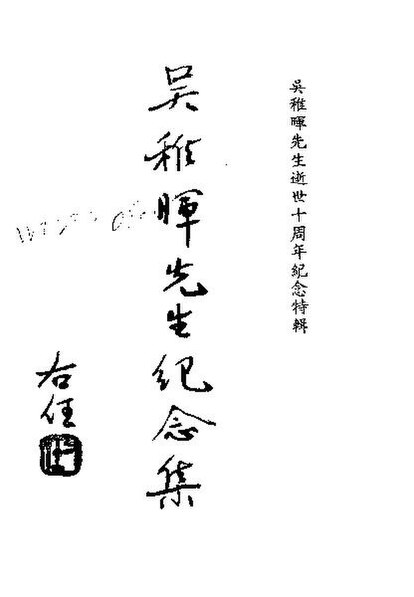 吳稚暉先生逝世十周年紀念特輯
吳稚暉先生紀念集
右任